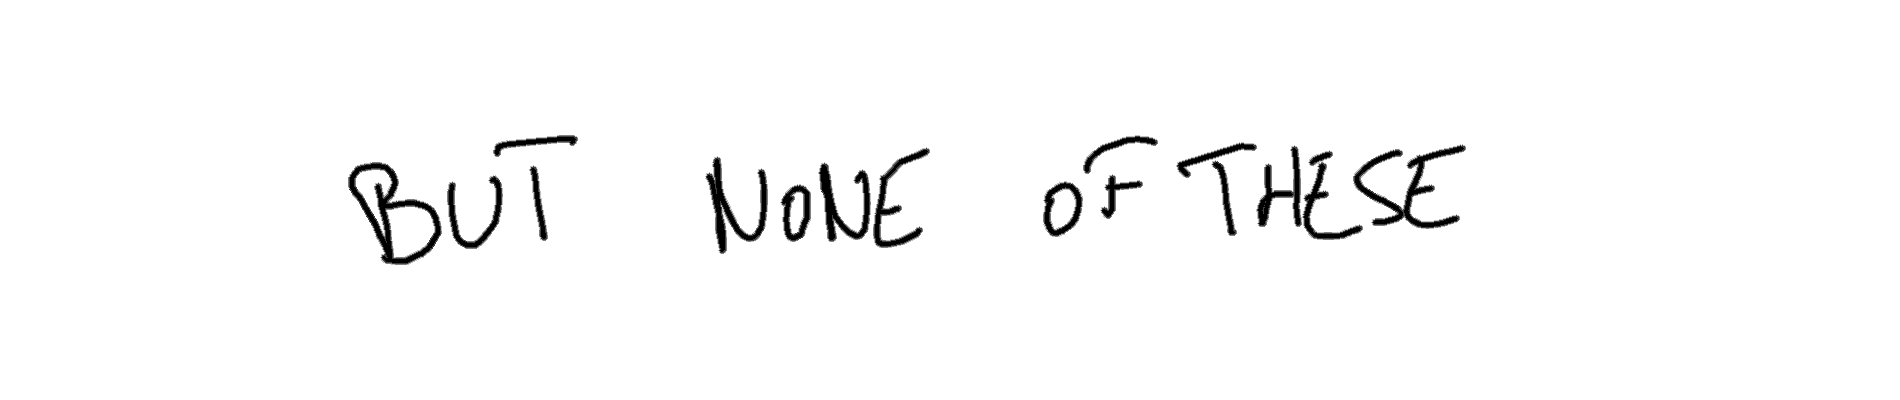 BUT NONE OF THESE